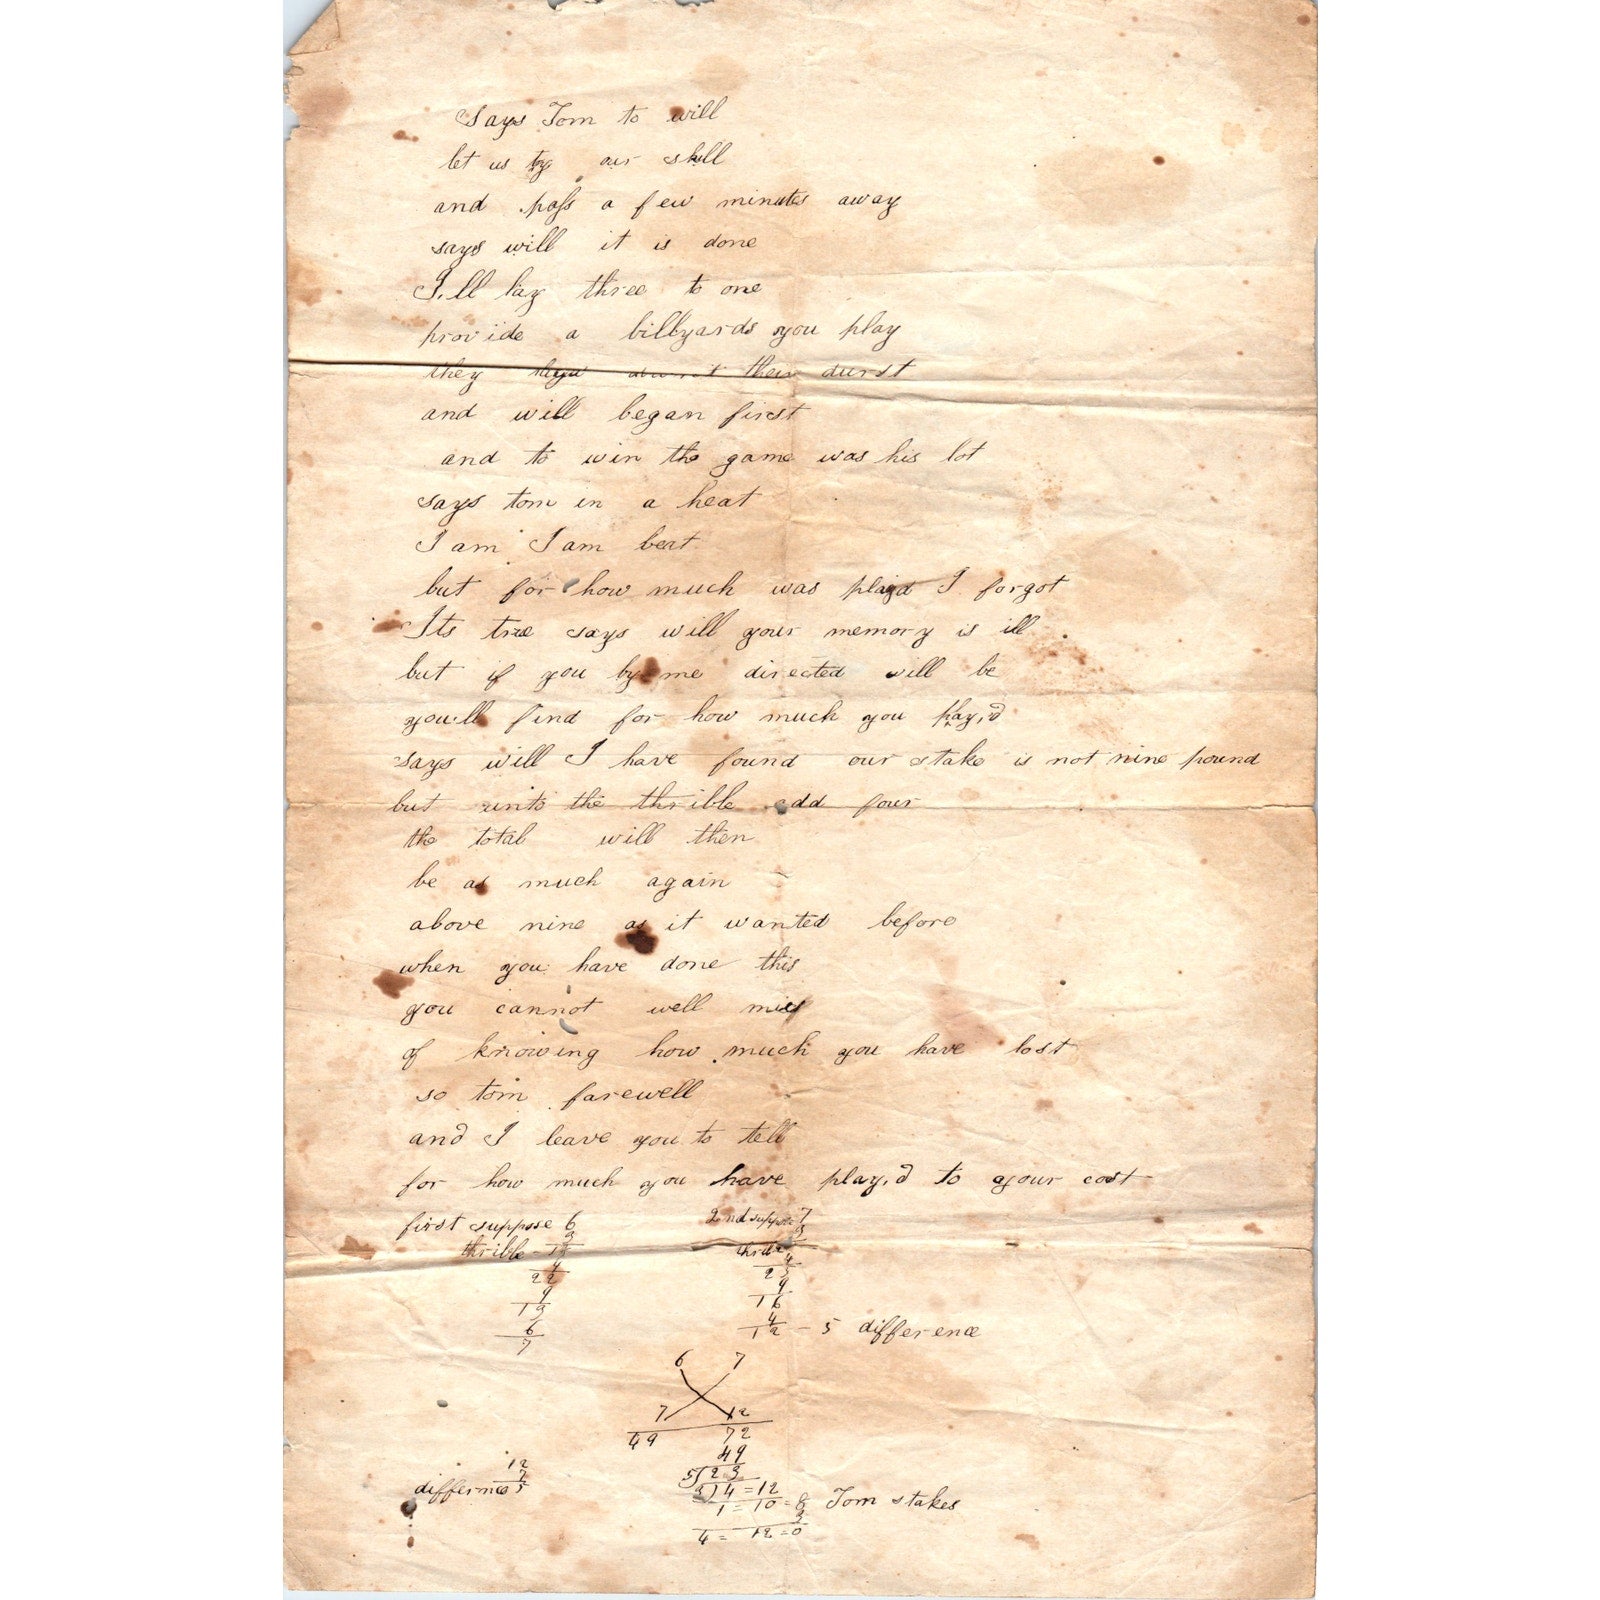 says Tom to will
let us try our skill
and pass a few minutes away
says will it is done
I,ll lay three to one
provide a billyards you play
they their durst
and will began first
and to win the game was his lot
says tom in a heat
I am I am beat
but for how much was plaiyd I forgot
Its true says will your memory is ill
but if you by me directed will be
you,ll find for how much you play,d
says will I have found our stake is not nine pound
but unto the thrible add four
the total will then
be as much again
above nine as it wanted before
when you have done this
you cannot well miss
of knowing how much you have lost
so tom farewell
and I leave you to tell
for how much you have play,d to your cost
first suppose 6 2nd suppose 7
3 3
thrible 18 thrible
4 4
22 25
9 9
13 16
6 4
7 12 - 5 difference
6 7
7 12
49 72
12 49
7 5)23
difference 5 3)4=12
1=10=8 Tom stakes
3
4=12=0